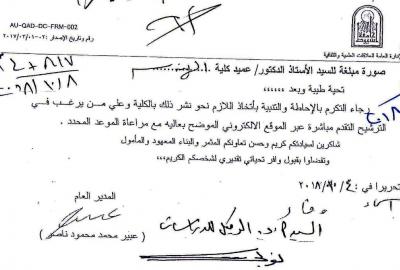 AU-QAD-DC-FRM-002
رقم وتاريخ الإصدار: ٠١-٠٣/٠٢/٢٠١٧
الإدارة العامة للعلاقات العلمية والثقافية
صورة مبلغة للسيد الأستاذ الدكتور/ عميد كلية
تحية طيبة وبعد
رجاء التكرم بالإحاطة والتنبية بأتخاذ اللازم نحو نشر ذلك بالكلية وعلي من يرغب في
الترشيح التقدم مباشرة عبر الموقع الالكتروني الموضح بعاليه مع مراعاة الموعد المحدد.
شاكرين لسيادتكم كريم وحسن تعاونكم المثمر والبناء المعهود والمأمول
وتفضلوا بقبول وافر تحياتي تقديري لشخصكم الكريم،،،
تحريرا في ٤ / ١٠ / ٢٠١٨
المدير العام
( عبير محمد محمود ناصر )
السيد أ.د/ الوكيل للدراسات